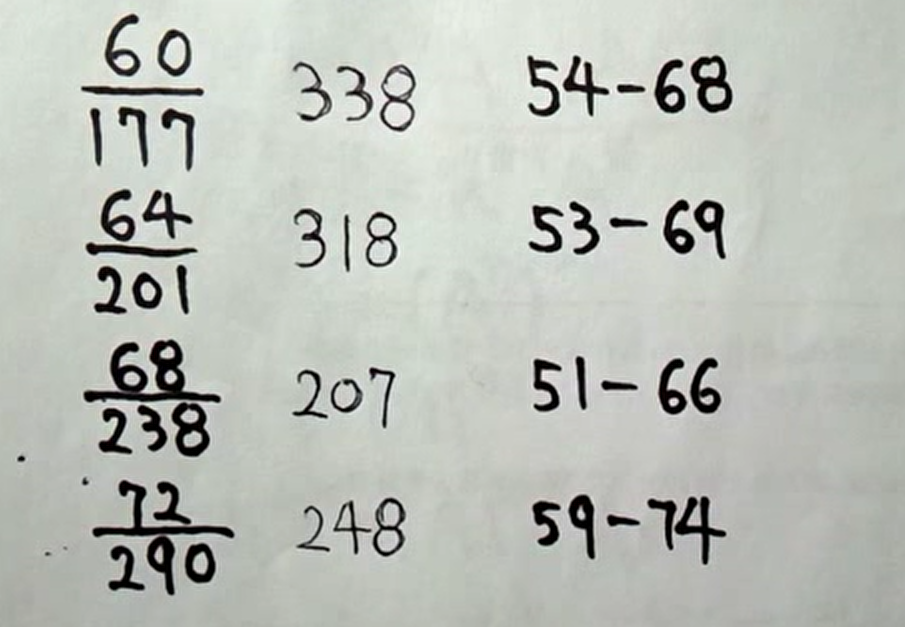 60/177 338 54-68
64/201 318 53-69
68/238 207 51-66
72/290 248 59-74